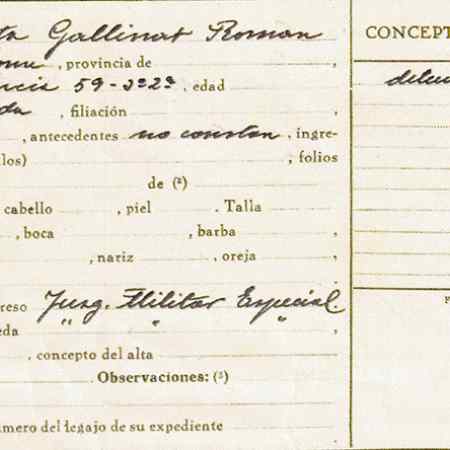 ta Gallinat Roman
CONCEPT
, provincia de ,
59-3º2ª , edad
da , filiación ,
, antecedentes no constan , ingre-
los) , folios
de (²)
cabello , piel . Talla
, boca , barba ,
, nariz , oreja ,
reso Juzg. Militar Especial
eda " " " ,
, concepto del alta
. Observaciones: (³)
úmero del legajo de su expediente